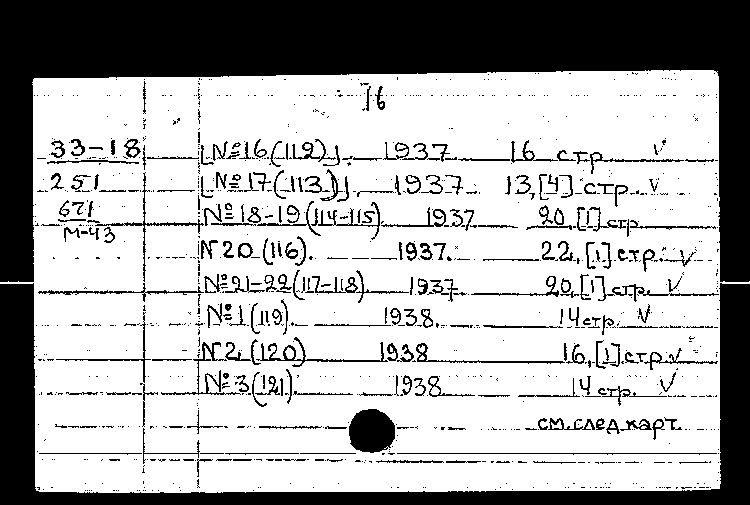 16
33-18 [№16(112)]. 1937 16 стр. √
251 [№17(113)]. 1937 13,[4] стр. √
671 №18-19(114-115). 1937 20,[1] стр.
М-43
№20(116). 1937. 22,[1] стр. √
№21-22(117-118). 1937. 20,[1] стр. √
№1(119). 1938. 14 стр. √
№2(120) 1938 16,[1] стр √
№3(121). 1938 14 стр. √
см. след. карт.